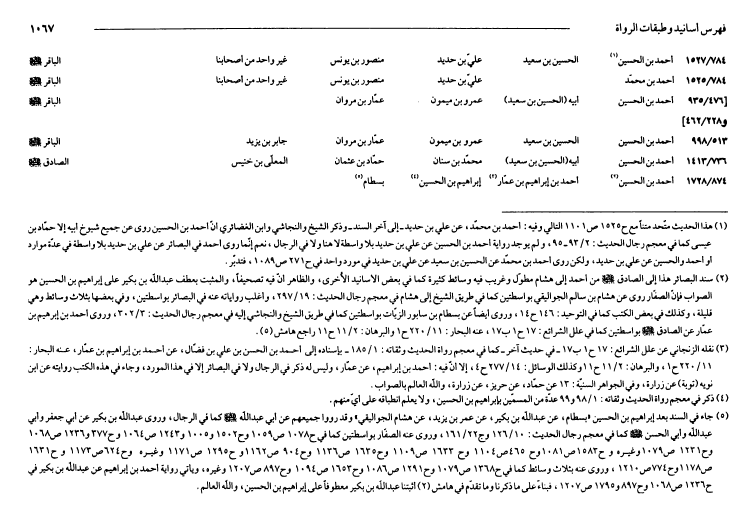 فهرس أسانيد وطبقات الرواة ١٠٦٧
١٥٢٧/٧٨٤ أحمد بن الحسين(١) الحسين بن سعيد عليّ بن حديد منصور بن يونس غير واحد من أصحابنا الباقر ﵇
١٥٢٥/٧٨٤ أحمد بن محمّد عليّ بن حديد منصور بن يونس غير واحد من أصحابنا الباقر ﵇
[٩٣٥/٤٧٦ أحمد بن الحسين أبيه (الحسين بن سعيد) عمرو بن ميمون عمّار بن مروان الباقر ﵇
و٤٦٢/٢٢٨]
٩٩٨/٥١٣ أحمد بن الحسين الحسين بن سعيد عمرو بن ميمون عمّار بن مروان جابر بن يزيد الباقر ﵇
١٤١٣/٧٣٦ أحمد بن الحسين أبيه (الحسين بن سعيد) محمّد بن سنان حمّاد بن عثمان المعلّى بن خنيس الصادق ﵇
١٧٢٨/٨٧٤ أحمد بن الحسين(٢) أحمد بن إبراهيم بن عمّار(٣) إبراهيم بن الحسين(٤) بسطام(٥)
(١) هذا الحديث متّحد متناً مع ح١٥٢٥ ص١١٠١ التالي وفيه: أحمد بن محمّد، عن علي بن حديد-إلى آخر السند-وذكر الشيخ والنجاشي وابن الغضائري انّ أحمد بن الحسين روى عن جميع شيوخ أبيه إلا حمّاد بن
عيسى كما في معجم رجال الحديث: ٩٣/٢-٩٥، و لم يوجد رواية أحمد بن الحسين عن علي بن حديد بلا واسطة لا هنا ولا في الرجال، نعم إنّما روى أحمد في البصائر عن علي بن حديد بلا واسطة في عدّة موارد
او احمد والحسين عن علي بن حديد، ولكن روى أحمد بن محمّد عن الحسين بن سعيد عن علي بن حديد في مورد واحد في ح٢٧١ ص١٠٨٩، فتدبّر.
(٢) سند البصائر هذا إلى الصادق ﵇ من أحمد إلى هشام مطوّل وغريب فيه وسائط كثيرة كما في بعض الاسانيد الأخرى، والظاهر انّ فيه تصحيفاً، والمثبت بعطف عبدالله بن بكير على إبراهيم بن الحسين هو
الصواب فإنّ الصفّار روى عن هشام بن سالم الجواليقي بواسطتين كما في طريق الشيخ إلى هشام في معجم رجال الحديث: ٢٩٧/١٩، وأغلب رواياته عنه في البصائر بواسطتين، وفي بعضها بثلاث وسائط وهي
قليلة، وكذلك في بعض الكتب كما في التوحيد: ١٤٦ ح١٤، وروى أيضاً عن بسطام بن سابور الزيّات بواسطتين كما في طريق الشيخ والنجاشي إليه في معجم رجال الحديث: ٣٠٢/٣، وروى أحمد بن إبراهيم بن
عمّار عن الصادق ﵇ بواسطتين كما في علل الشرائع: ١٧ ح١ ب١٧، عنه البحار: ٢٢٠/١١ ح١ والبرهان: ١١/٢ ح١١ راجع هامش (٥).
(٣) نقله الزنجاني عن علل الشرائع: ١٧ ح١ ب١٧-في حديث آخر-كما في معجم رواة الحديث وثقاته: ١٨٥/١- بإسناده إلى أحمد بن الحسن بن علي بن فضّال، عن أحمد بن إبراهيم بن عمّار، عنه البحار:
٢٢٠/١١ ح١، والبرهان: ١١/٢ ح١١ وكذلك الوسائل: ٢٧٧/١٤ ح٤، إلا انّ فيه: أحمد بن إبراهيم، عن عمّار، وليس له ذكر في الرجال ولا في البصائر إلا في هذا المورد، وجاء في هذه الكتب روايته عن ابن
نويه (توبة) عن زرارة، وفي الجواهر السنيّة: ١٣ عن حمّاد، عن حريز، عن زرارة، والله العالم بالصواب.
(٤) ذكر في معجم رواة الحديث وثقاته: ٩٨/١ و٩٩ عدّة من المسمّين بإبراهيم بن الحسين، ولا يعلم انطباقه على أيّ منهم.
(٥) جاء في السند بعد إبراهيم بن الحسين «بسطام، عن عبدالله بن بكير، عن عمر بن يزيد، عن هشام الجواليقي» وقد رووا جميعهم عن أبي عبدالله ﵇ كما في الرجال، وروى عبدالله بن بكير عن أبي جعفر وأبي
عبدالله وأبي الحسن ﵇ كما في معجم رجال الحديث: ١٢٦/١٠ و١٢٢/٢٢ ح١٦١، وروى عنه الصفّار بواسطتين كما في ح١٠٧٨ ص١٠٥٩ وح١٥٠٢ و١٠٠٥ و١٢٤٣ ص١٠٦٤ وح٣٧٧ ص١٢٣٦ ص١٠٦٨
وح١٢٣١ ص١٠٧٩ وغيره و ح١٥٨٣ ص١٠٨١ وح٤٦٥ ص١١٠٤ و ح١٦٣٣ ص١١٠٩ وح١٦٣٥ ص١١٣٦ وح٩٠٤ ص١١٦٢ وح١٢٩٥ ص١١٧١ وغيره و ح٦٢٤ ص١١٧٣ و ح١٦٣١
ص١١٧٨ وح٧٧٤ ص١٢١٠، وروى عنه بثلاث وسائط كما في ح١٣٦٨ ص١٠٧٩ وح١٢٩١ ص١٠٨٦ وح١٦٥٣ ص١٠٩٤ وح٨٩٧ ص١٢٠٧ وغيره، ويأتي رواية أحمد بن إبراهيم عن عبدالله بن بكير في
ح١٢٣٦ ص١٠٦٨ وح٨٩٧ و١٧٩٥ ص١٢٠٧، فبناءً على ما ذكرنا وما تقدّم في هامش (٢) أثبتنا عبدالله بن بكير معطوفاً على إبراهيم بن الحسين، والله العالم.